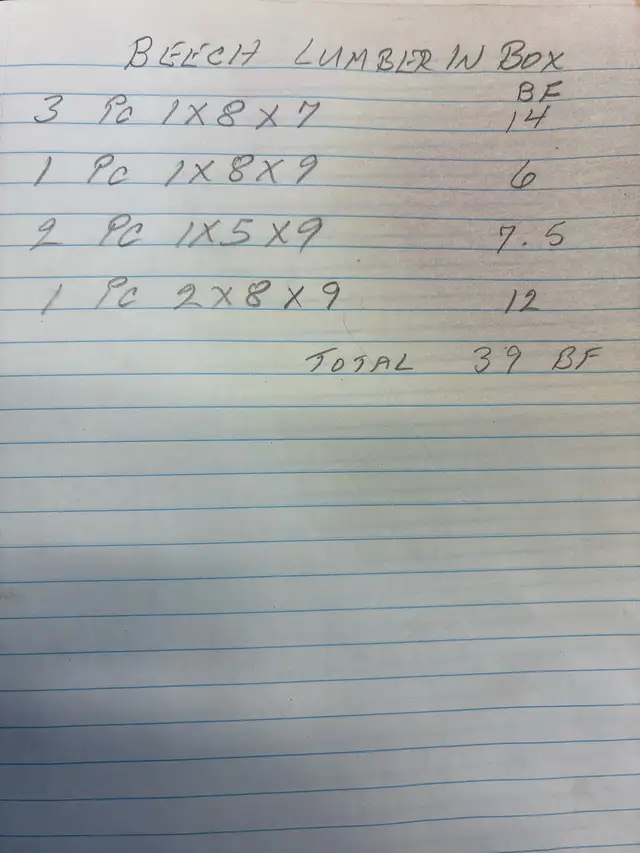 BEECH LUMBER IN BOX
BF
3 Pc 1X8X7 14
1 Pc 1X8X9 6
2 Pc 1X5X9 7.5
1 Pc 2X8X9 12
TOTAL 39 BF